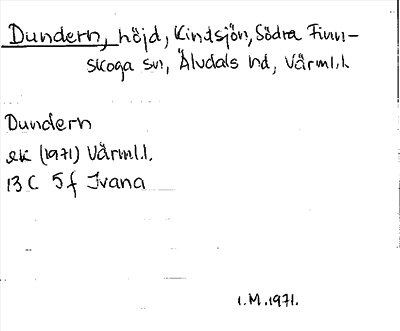 Dundern, höjd, Kindsjön, Södra Finn-
skoga sn, Älvdals hd, Värml.l.
Dundern
ek (1971) Värml.l.
13 C 5f Ivana
1.M.1971.